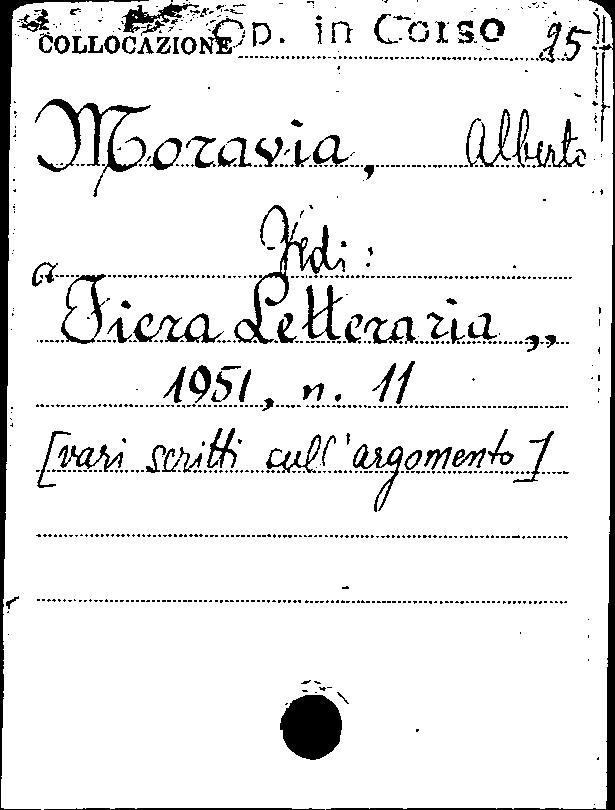 COLLOCAZIONE Op. in Corso 25
Moravia, Alberto
Vedi:
"Fiera Letteraria„
1951, n. 11
[vari scritti sull'argomento]